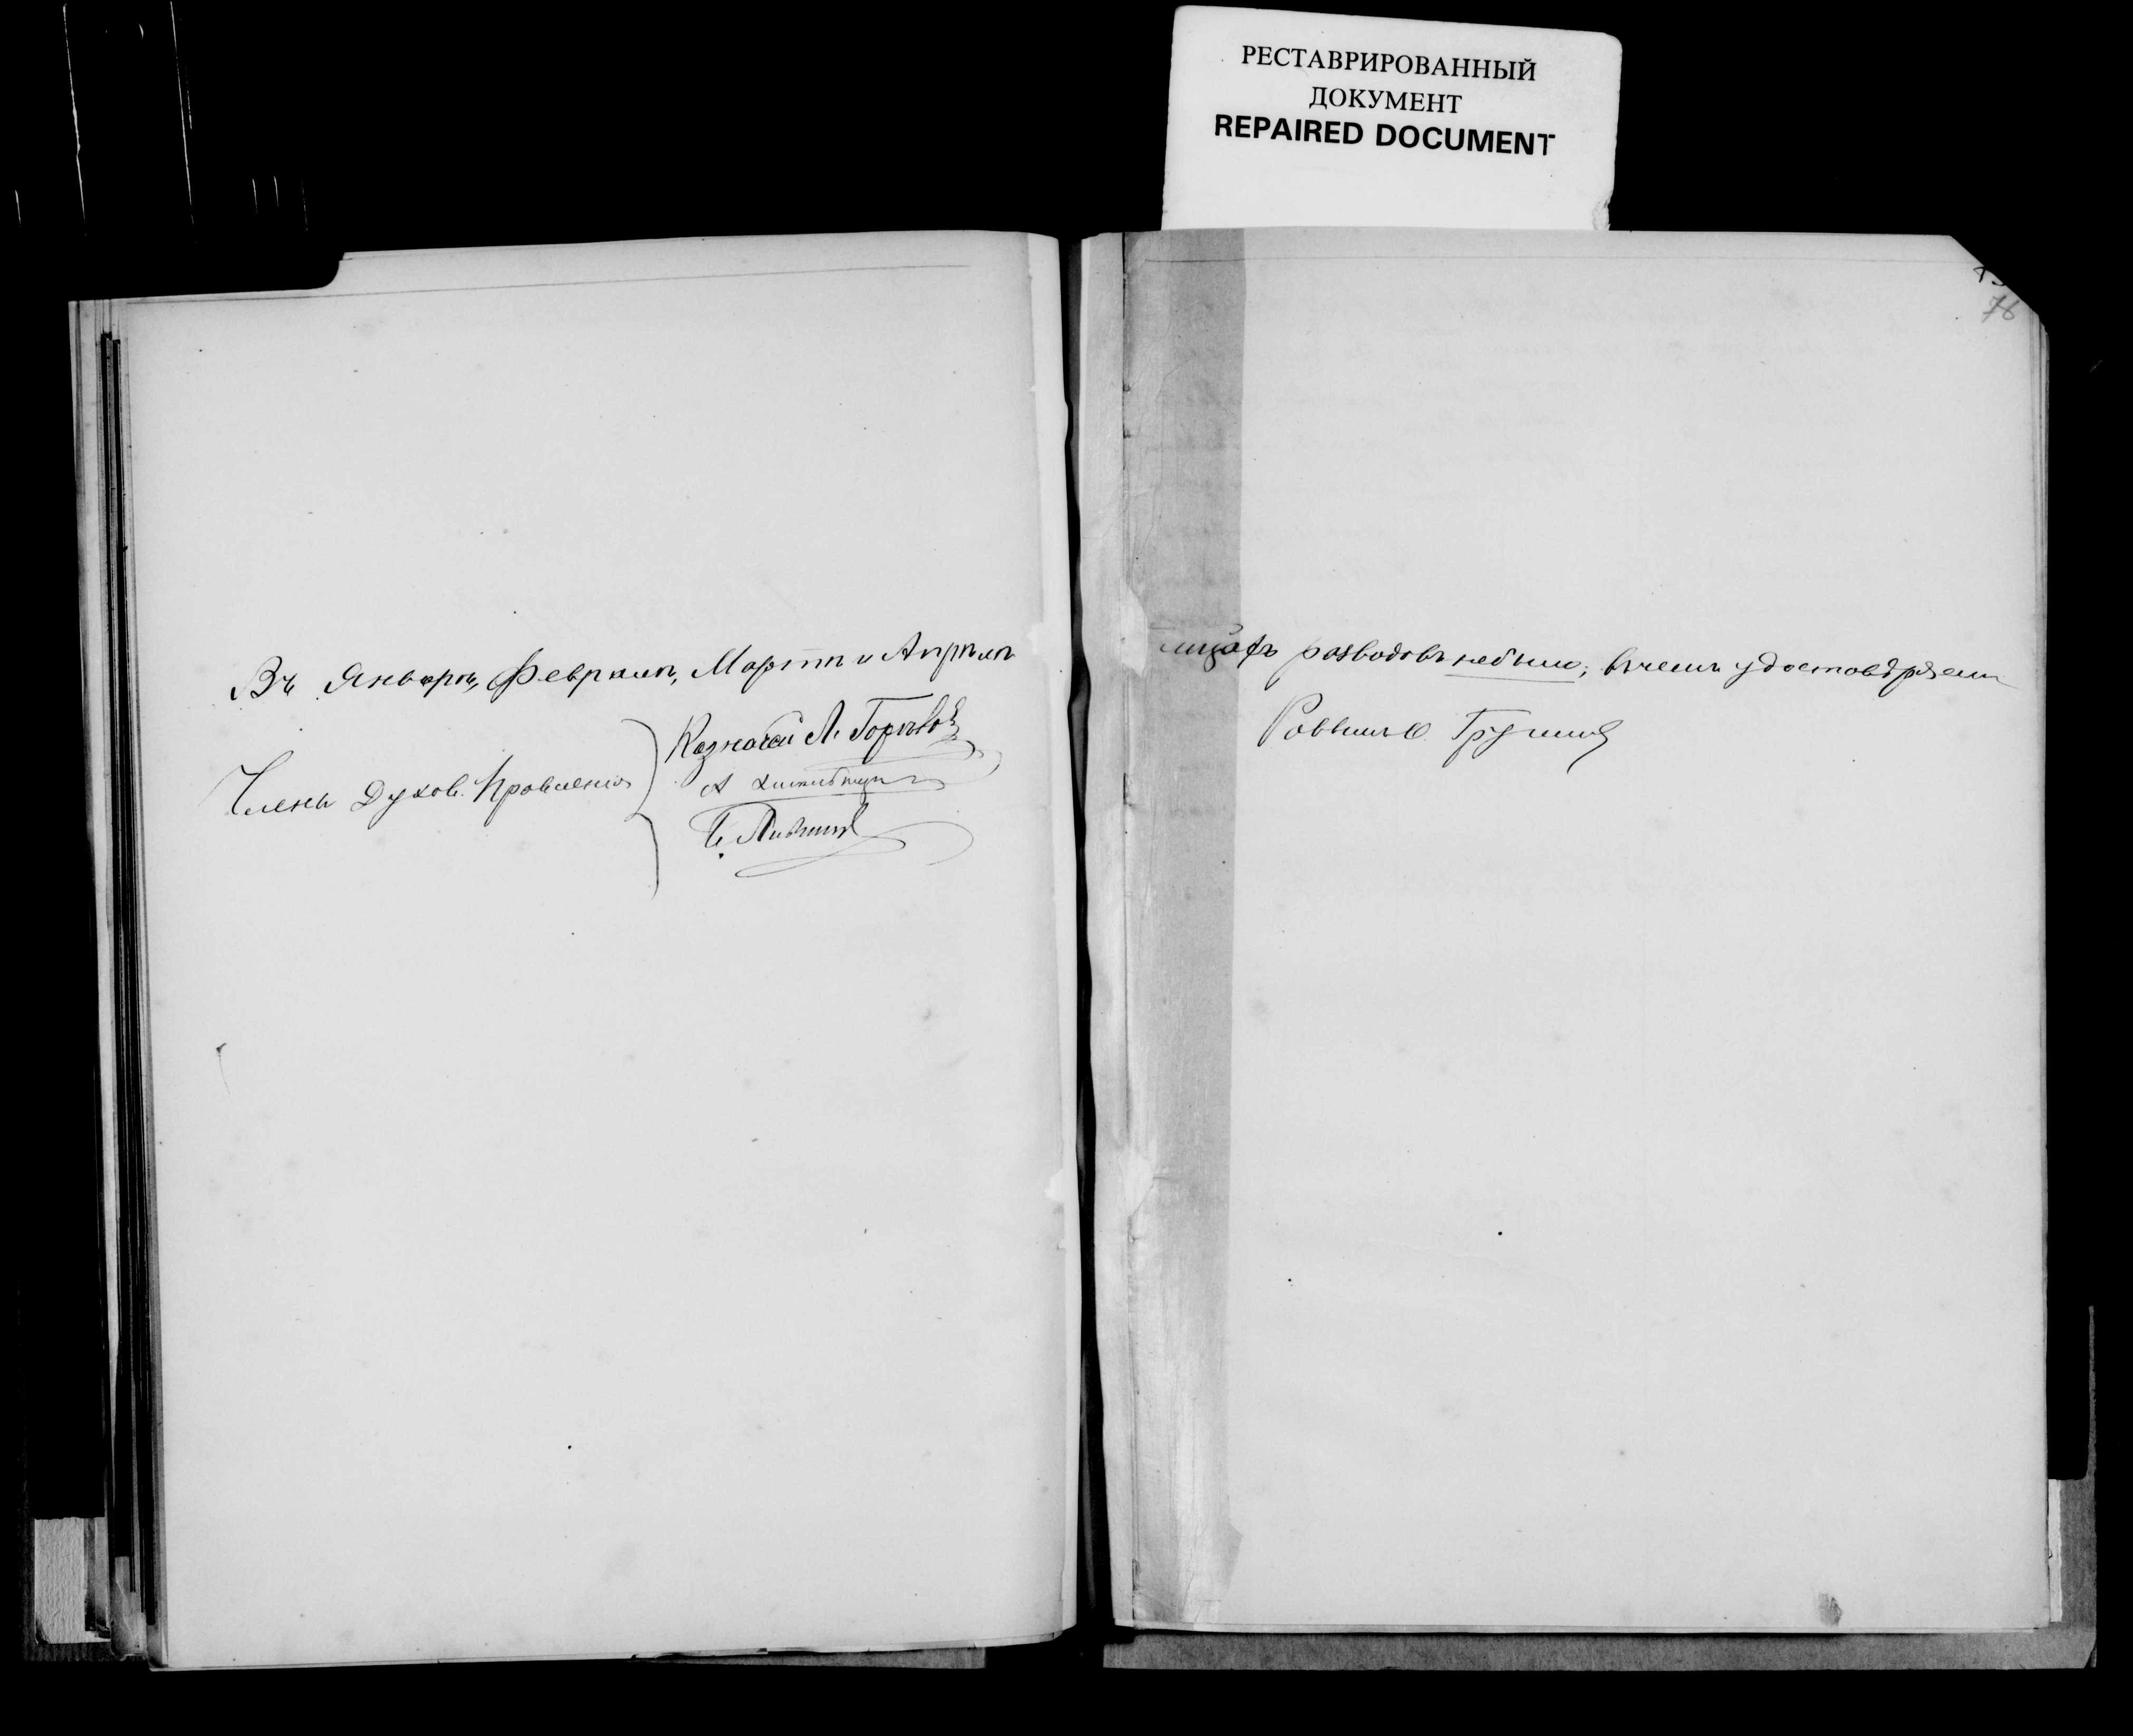 РЕСТАВРИРОВАННЫЙ
ДОКУМЕНТ
REPAIRED DOCUMENT
76
Въ Январѣ, Февралѣ, Мартѣ и Апрѣлѣ
Члены Духов. Правленія
Казначей Л.
мѣсяцахъ разводовъ небыло, въ чемъ удостовѣряемъ
Раввинъ